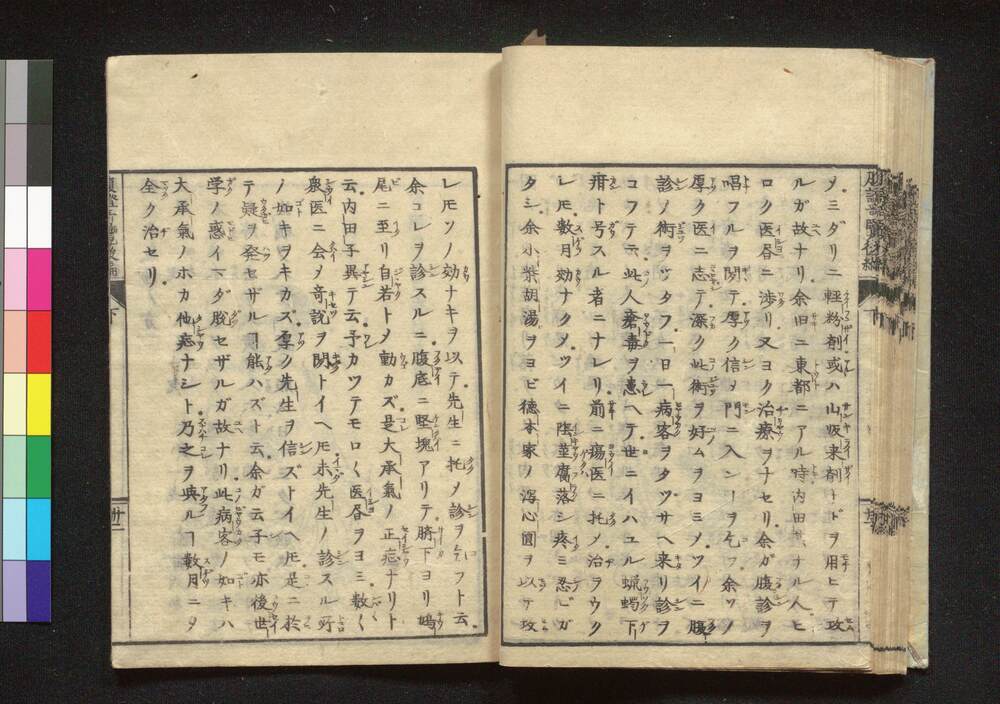 ソ、ミダリニ軽粉剤或ハ山皈来剤ナドヲ用ヒテ攻
ルガ故ナリ余旧ニ東都ニアル時内田ナル人ヒ
ロク医㫺ニ渉リ又ヨク治療ヲナセリ余ガ腹診ヲ
唱フルヲ聞テ厚ク信メ門ニ入ンヿヲ乞フ余ソノ
厚ク医ニ志テ深ク此術ヲ好ムヲヨミメツイニ腹
診ノ術ヲツタフ一日一病客ヲタツサヘ来リ診ヲ
コフテ云此人瘡毒ヲ患ヘテ世ニイハユル蝋蠋下
疳ト号スル者ニナレリ前ニ瘍医ニ托メ治ヲウク
レモ数月効ナクメツイニ陰莖腐落シ疼ミ忍ビガ
タシ余小柴胡湯ヲヨビ徳本家ノ瀉心圓ヲ以テ攻
レモソノ効ナキヲ以テ先生ニ托メ診ヲコフト云
余コレヲ診スルニ腹底ニ堅塊アリテ臍下ヨリ鳩
尾ニ至リ自若トメ動カズ是大承氣ノ正症ナリト
云内田子異テ云予カツテモロ〱医㫺ヲヨミ数〱
衆医ニ会メ奇説ヲ聞トイヘモ未先生ノ診スル所
ノ如キヲキカズ厚ク先生ヲ信ズトイヘモ是ニ於
テ疑ヲ発セザルヿ能ハズト云余ガ云子モ亦後世
学ノ惑イマダ脱セザルガ故ナリ此病客ノ如キハ
大承氣ノホカ他症ナシト乃之ヲ與ルヿ数月ニメ
全ク治セリ
下